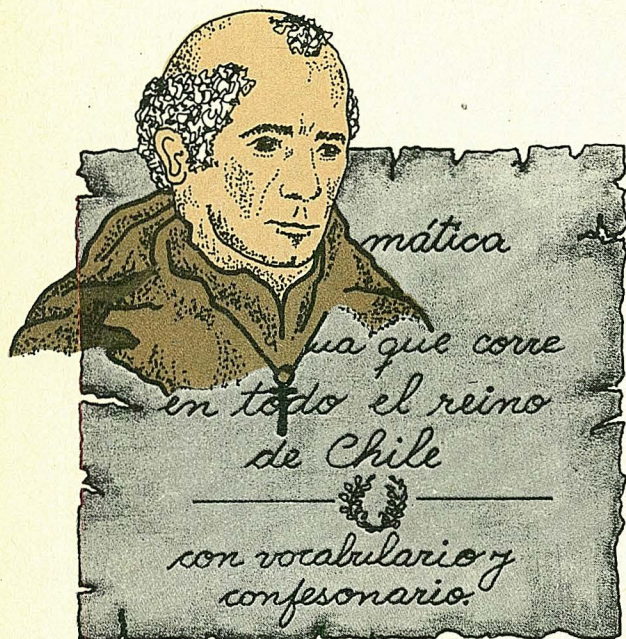 mática
ua que corre
en todo el reino
de Chile
con vocabulario y
confesonario.